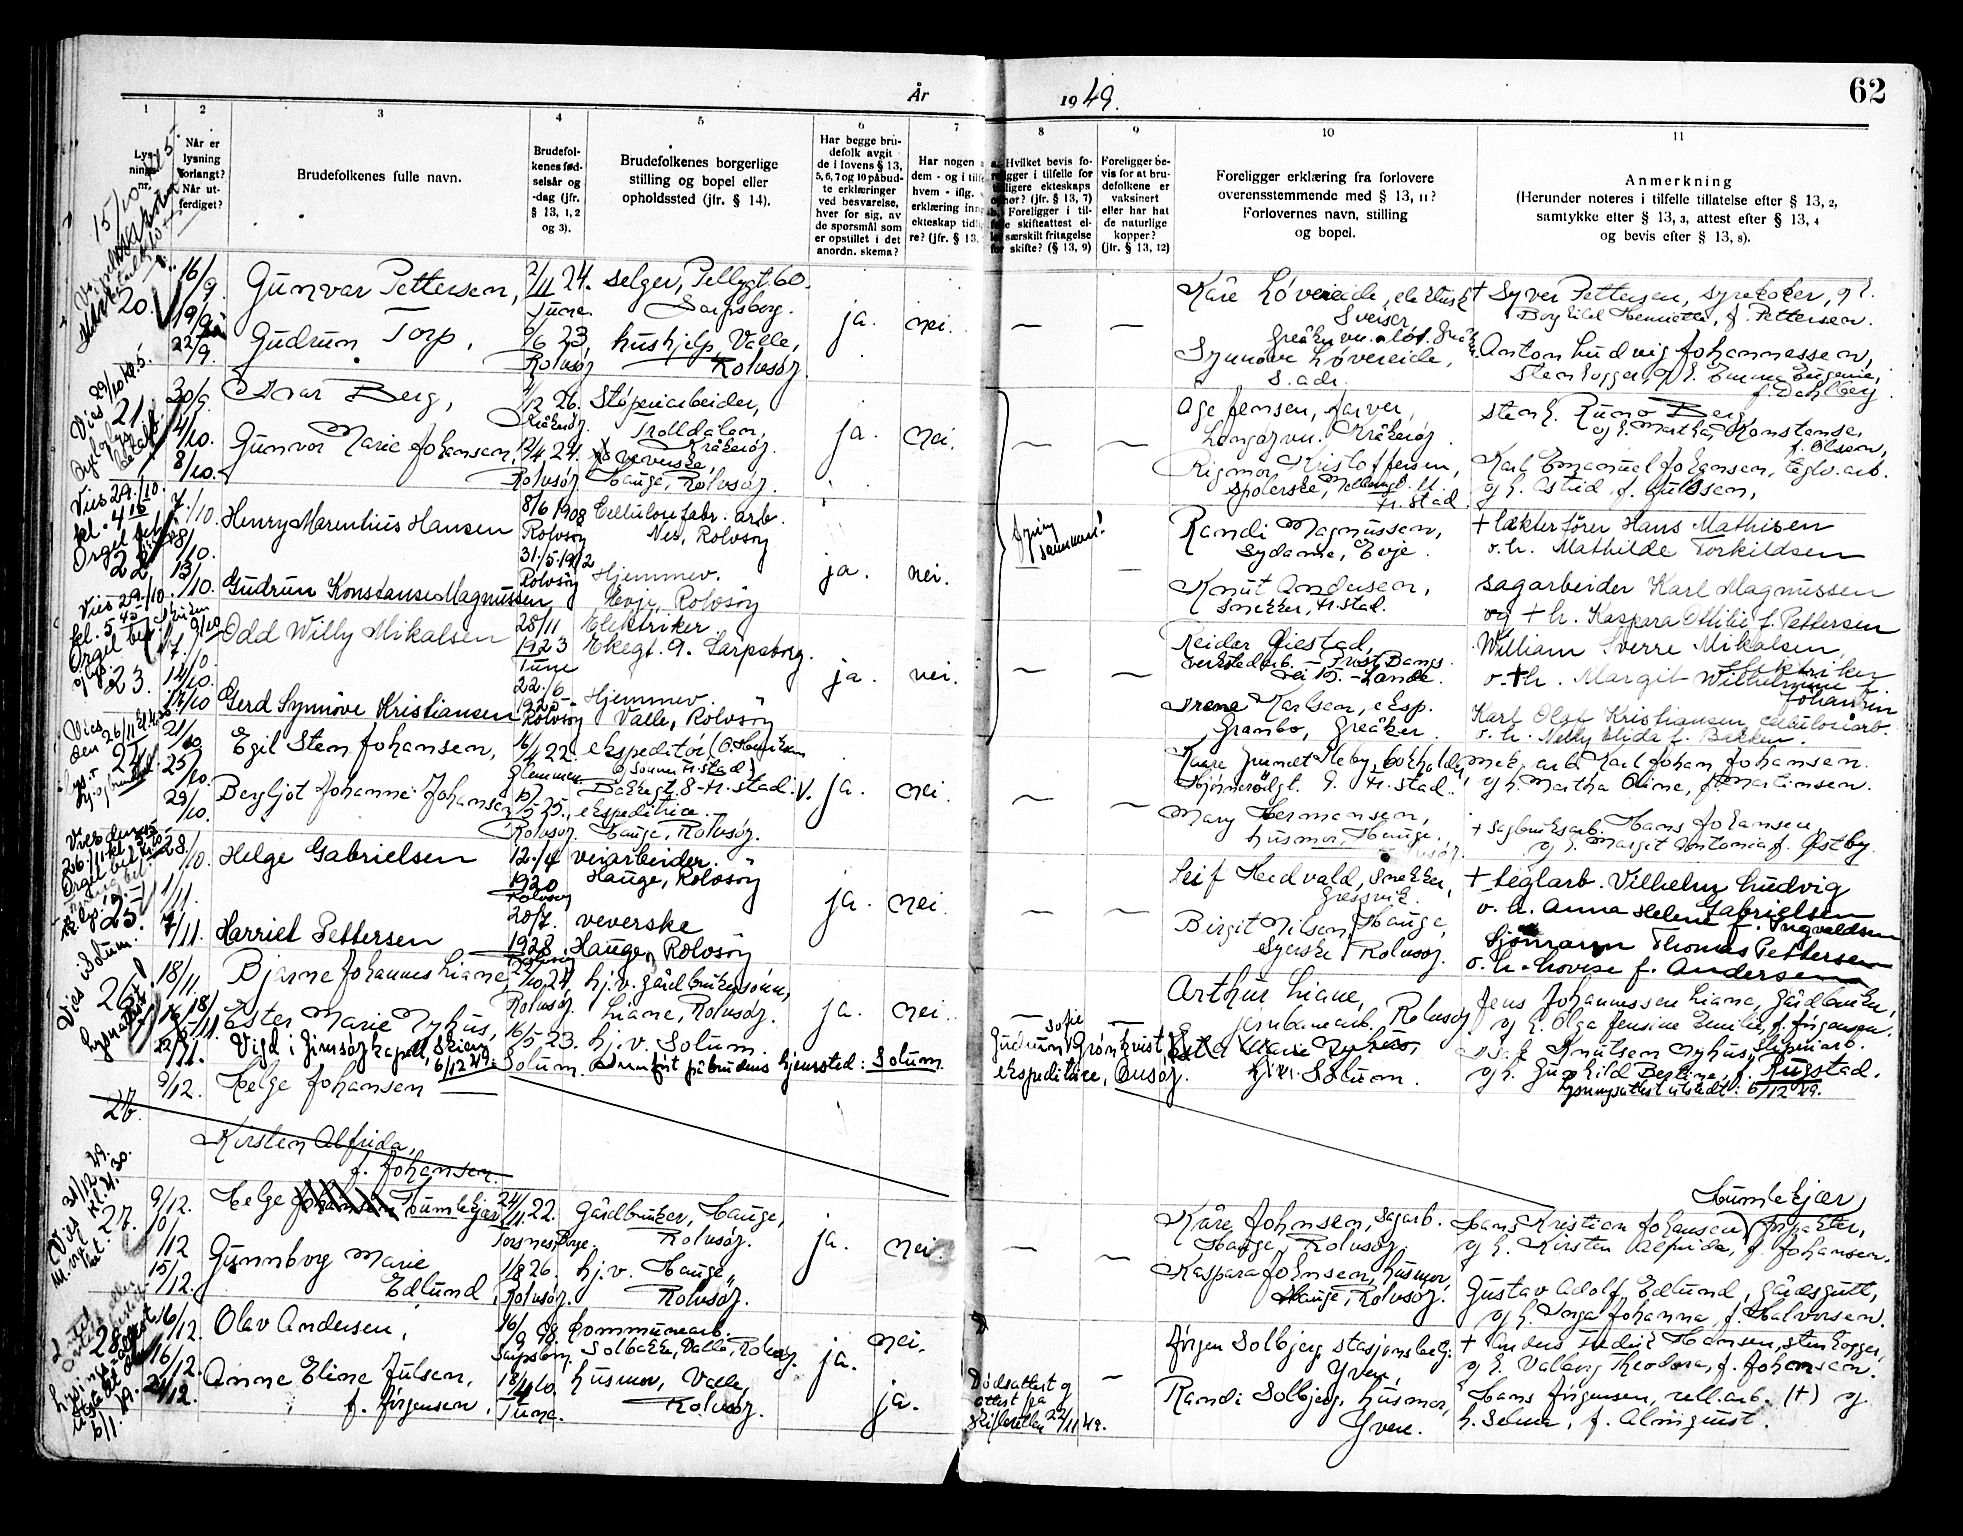 År 1949.
62
1 2 3 4 5 6 7 8 9 10 11
Lysnings nr.
Når er lysning forlangt? Når utferdiget?
Brudefolkenes fulle navn.
Brudefolkenes fødselsår og -dag (jfr. § 13, 1, 2 og 3).
Brudefolkenes borgerlige stilling og bopel eller opholdssted (jfr. § 14).
Har begge brudefolk avgit de i lovens § 13, 5, 6, 7 og 10 påbudte erklæringer ved besvarelse, hver for sig, av de spørsmål som er opstillet i det anordn. skema?
Har nogen a
dem - og i tilfe
hvem - iflg. s
erklæring inng
ekteskap tidl
re? (jfr. § 13,
Hvilket bevis foreligger i tilfelle for tidligere ekteskaps ophør? (jfr. § 13, 7)
Foreligger i tilfelle skifteattest eller særskilt fritagelse for skifte? (§ 13, 9)
Foreligger bevis for at brudefolkene er vaksinert eller har hat de naturlige kopper? (jfr. § 13, 12)
Foreligger erklæring fra forlovere overensstemmende med § 13, 11? Forlovernes navn, stilling og bopel.
Anmerkning
(Herunder noteres i tilfelle tillatelse efter § 13, 2, samtykke efter § 13, 3, attest efter § 13, 4 og bevis efter § 13, 8).
20.
16/9
19/9
22/9.
Gunvar Pettersen,
2/11 24.
Tune.
selger, Pellygt. 60.
Sarpsborg.
Gudrun Torp,
6/6 23,
Rolvsøy
hushjelp, Valle,
Rolvsøy.
ja. nei. — —
Kåre Løvereide, elektrisk
Sveiser
Synnøve Løvereide,
s. adr.
+ Syver Pettersen, syrekoker, og h.
Borghild Henriette, f. Pettersen.
Anton Ludvig Johannessen,
stenhogger, og h. Emma Eugenie,
f. Dahlberg.
Vies 29/10
21.
30/9
4/10.
8/10.
Ivar Berg,
Kråkerøy
Støperiarbeider,
Trolldalen,
Kråkerøy.
Gunvor Marie Johansen,
12/4 24.
Rolvsøy
veverske,
Hauge, Rolvsøy.
ja. nei. — —
Åge Jensen, farver,
Langøyvn. Kråkerøy.
Rigmor Kristoffersen,
spolerske,
Fr. Stad.
stenh. Runo Berg,
og h. Martha Konstanse,
f. Olsen,
Karl Emanuel Johansen, teglv. arb.
og h. Astrid, f. Gulssen,
Vies 29./10.
kl. 4 15
Orgel bet.
22.
7./10.
8/10.
13/10.
Henry Marentius Hansen
8/6 1908
Rolvsøy
Cellulosefabr. arb.
Nes, Rolvsøy
Gudrun Konstanse Magnussen
31/5-1912
Rolvsøy
Hjemmev.
Evje, Rolvsøy
ja. nei. —
spring
sammen!
Randi Magnussen,
Sydame, Evje.
Knut Andersen,
Snekker, Fr. stad.
+ lækterfører Hans Mathisen
o. h. Mathilde Torkildsen
sagarbeider Karl Magnussen
og + h. Kaspara Otilie f. Pettersen
Vies 29./10.
kl. 5 45
23.
14/10.
17/10
Odd Willy Mikalsen
28/11
1923
Tune
Elektriker
Ekegt. 9. Sarpsborg.
Gerd Synnöve Kristiansen
22./6
1925-
Rolvsøy
Hjemmev.
Valle, Rolvsøy
ja. nei. — —
Reidar Øiestad,
verkstedarb.
Irene Karlsen, eksp.
Grambo, Greåker
William Sverre Mikalsen,
elektriker
o. + h. Margit Wilhelmine f.
Johansen
Karl Olaf Kristiansen, cellulosearb.
o. h. Nelly Elida f. Bakken.
Vies
den 26/11
24.
21/10
25/10.
29/10.
Egil Sten Johansen,
16/1 22.
Glemmen
ekspeditør (O. Henriksen
og sønner Fr. stad)
Bakkegt. 8 - Fr. stad.
Bergljot Johanne Johansen
Rolvsøy.
ekspeditrice.
Hauge, Rolvsøy.
ja. nei. — —
Kåre Gundt Kleby, bokholder,
Bjørnerødgt. 9. Fr. stad.
Mary Hermansen,
husmor, Hauge,
mek. arb. Karl Johan Johansen.
og h. Martha Oline, f. Martinsen.
+ sagbruksarb. Hans Johansen
og h. Margit Antonia f. Østby.
Vies den
26./11 kl.
25.
28./10
1/11.
7/11.
Helge Gabrielsen
12./4
1920
Rolvsøy
veiarbeider.
Hauge, Rolvsøy
Harriet Pettersen
20/7.
1928.
veverske
Hauge, Rolvsøy
ja. nei — —
Leif Hedvald, Snekker,
Gressvik.
Birgit Nilsen, Hauge,
Syerske, Rolvsøy.
+ teglarb. Vilhelm Ludvig
Gabrielsen
o. h. Anna Helene f. Ingvaldsen
Sjömann Thomas Pettersen
o. h. Lovise f. Andersen
Vies i Solum.
26.
18/11.
18/11.
22/11.
Bjarne Johannes Liane,
Rolvsøy.
hj. v. gårdbrukersønn,
Liane, Rolvsøy.
Ester Marie Nyhus,
16/5-23.
Solum.
hj. v. Solum.
Vigd i Gimsøy kapell, Skien 6/12 49.
innført på brudens hjemsted: Solum
ja. nei. — —
Gudrun Sofie Grønkvist,
ekspeditrice, Onsøy.
Arthur Liane,
jernbanearb. Rolvsøy
Ester Marie Nyhus,
hjm. Solum.
Jens Johannessen Liane, gårdbruker,
og h. Olga Jensine Emilie, f. Jørgensen.
Isak Knutsen Nyhus, sliperiarb.
og h. Gunhild Bestine, f. Rugstad.
lysningsattest utstedt: 6/12 49.
27.
9/12.
Helge Johansen
Kirsten Alfrida,
f. Johansen.
Vies 31/12 49.
Kl. 4.30.
27.
9/12.
10/12
15/12.
Helge Johansen Humlekjær
24/11.22.
Torsnes, Borge.
Gårdbruker, Hauge,
Rolvsøy.
Gunnborg Marie
Edlund,
1/8 26.
Rolvsøy.
hj. v. Hauge,
Rolvsøy.
ja. nei — —
Kåre Johnsen, sagarb.
Hauge, Rolvsøy
Kaspara Johnsen, husmor,
Hauge, Rolvsøy.
Humlekjær,
Hans Kristian Johansen, forpakter,
og h. Kirsten Alfrida, f. Johansen.
Gustav Adolf Edlund, gårdsgutt,
og h. Inga Johanna, f. Halvorsen.
28.
16/12.
16/12.
24/12.
Olav Andersen,
16/9 98.
Sarpsborg.
kommunearb.
Solbakke, Valle, Rolvsøy.
Anne Eline Julsen,
f. Jørgensen,
18/4 10.
Tune.
husmor, Valle,
Rolvsøy.
ja. nei.
ja.
Dødsattest og
attest fra
skifteretten 22/11 49.
—
Jørgen Solbjerg, stasjonsbetj.
Yven,
Randi Solbjerg, husmor,
Yven.
+ Anders Fredrik Hansen, stenhogger,
og h. Valborg Theodora, f. Johansen.
Hans Jørgensen, cell. arb. (+) og
h. Selma, f. Almquist.